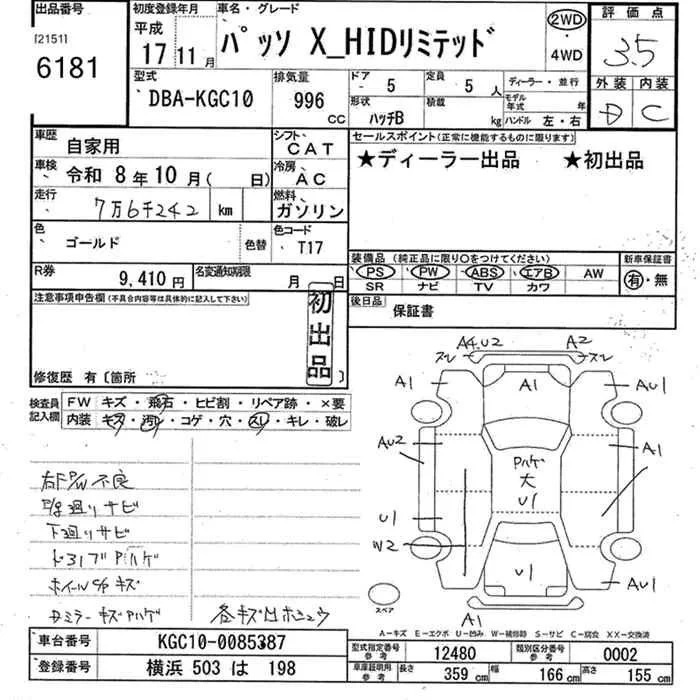 出品番号
[21511
6181
初度登録年月
平成
17 11 月
車名・グレード
パッソ X_HIDリミテッド
2WD
・
4WD
評価点
3.5
外装 内装
D C
型式
DBA-KGC10
排気量
996
CC
ドア
5
定員
5 人
形状
ハッチB
積載
kg
ディーラー・並行
モデル年式 年
ハンドル 左・右
車歴
自家用
シフト
CAT
車検
令和 8年 10月( 日)
冷房
AC
走行
7万6千242 km
燃料
ガソリン
色
ゴールド
色替
色コード
T17
R券
9,410 円
名変通知期限
月 日
セールスポイント(正常に機能するものに限ります)
★ディーラー出品 ★初出品
装備品 (純正品に限り○をつけてください)
PS PW ABS エアB AW
SR ナビ TV カワ
新車保証書
有・無
後日品
保証書
注意事項申告欄(不具合内容等は具体的に記入して下さい)
初出品
修復歴 有〔箇所 〕
検査員記入欄
FW キズ・飛石・ヒビ割・リペア跡・×要
内装 キズ・汚レ・コゲ・穴・スレ・キレ・破レ
右F P/W 不良
下廻りサビ
ホイールキズ
Dミラーキズ Pハゲ
A4.U2 A2
スレ スレ
A1 A1 AU1
AU2 A1
Pハゲ
大
U1
U1
W2
U1 AU1
スペア
A1
A-キズ E-エクボ U-凹み W-補修跡 S-サビ C-腐食 XX-交換済
車台番号
KGC10-0085387
登録番号
横浜 503 は 198
型式指定番号
参考
12480
類別区分番号
参考
0002
車庫証明用
参考
長さ 359 cm 幅 166 cm 高さ 155 cm